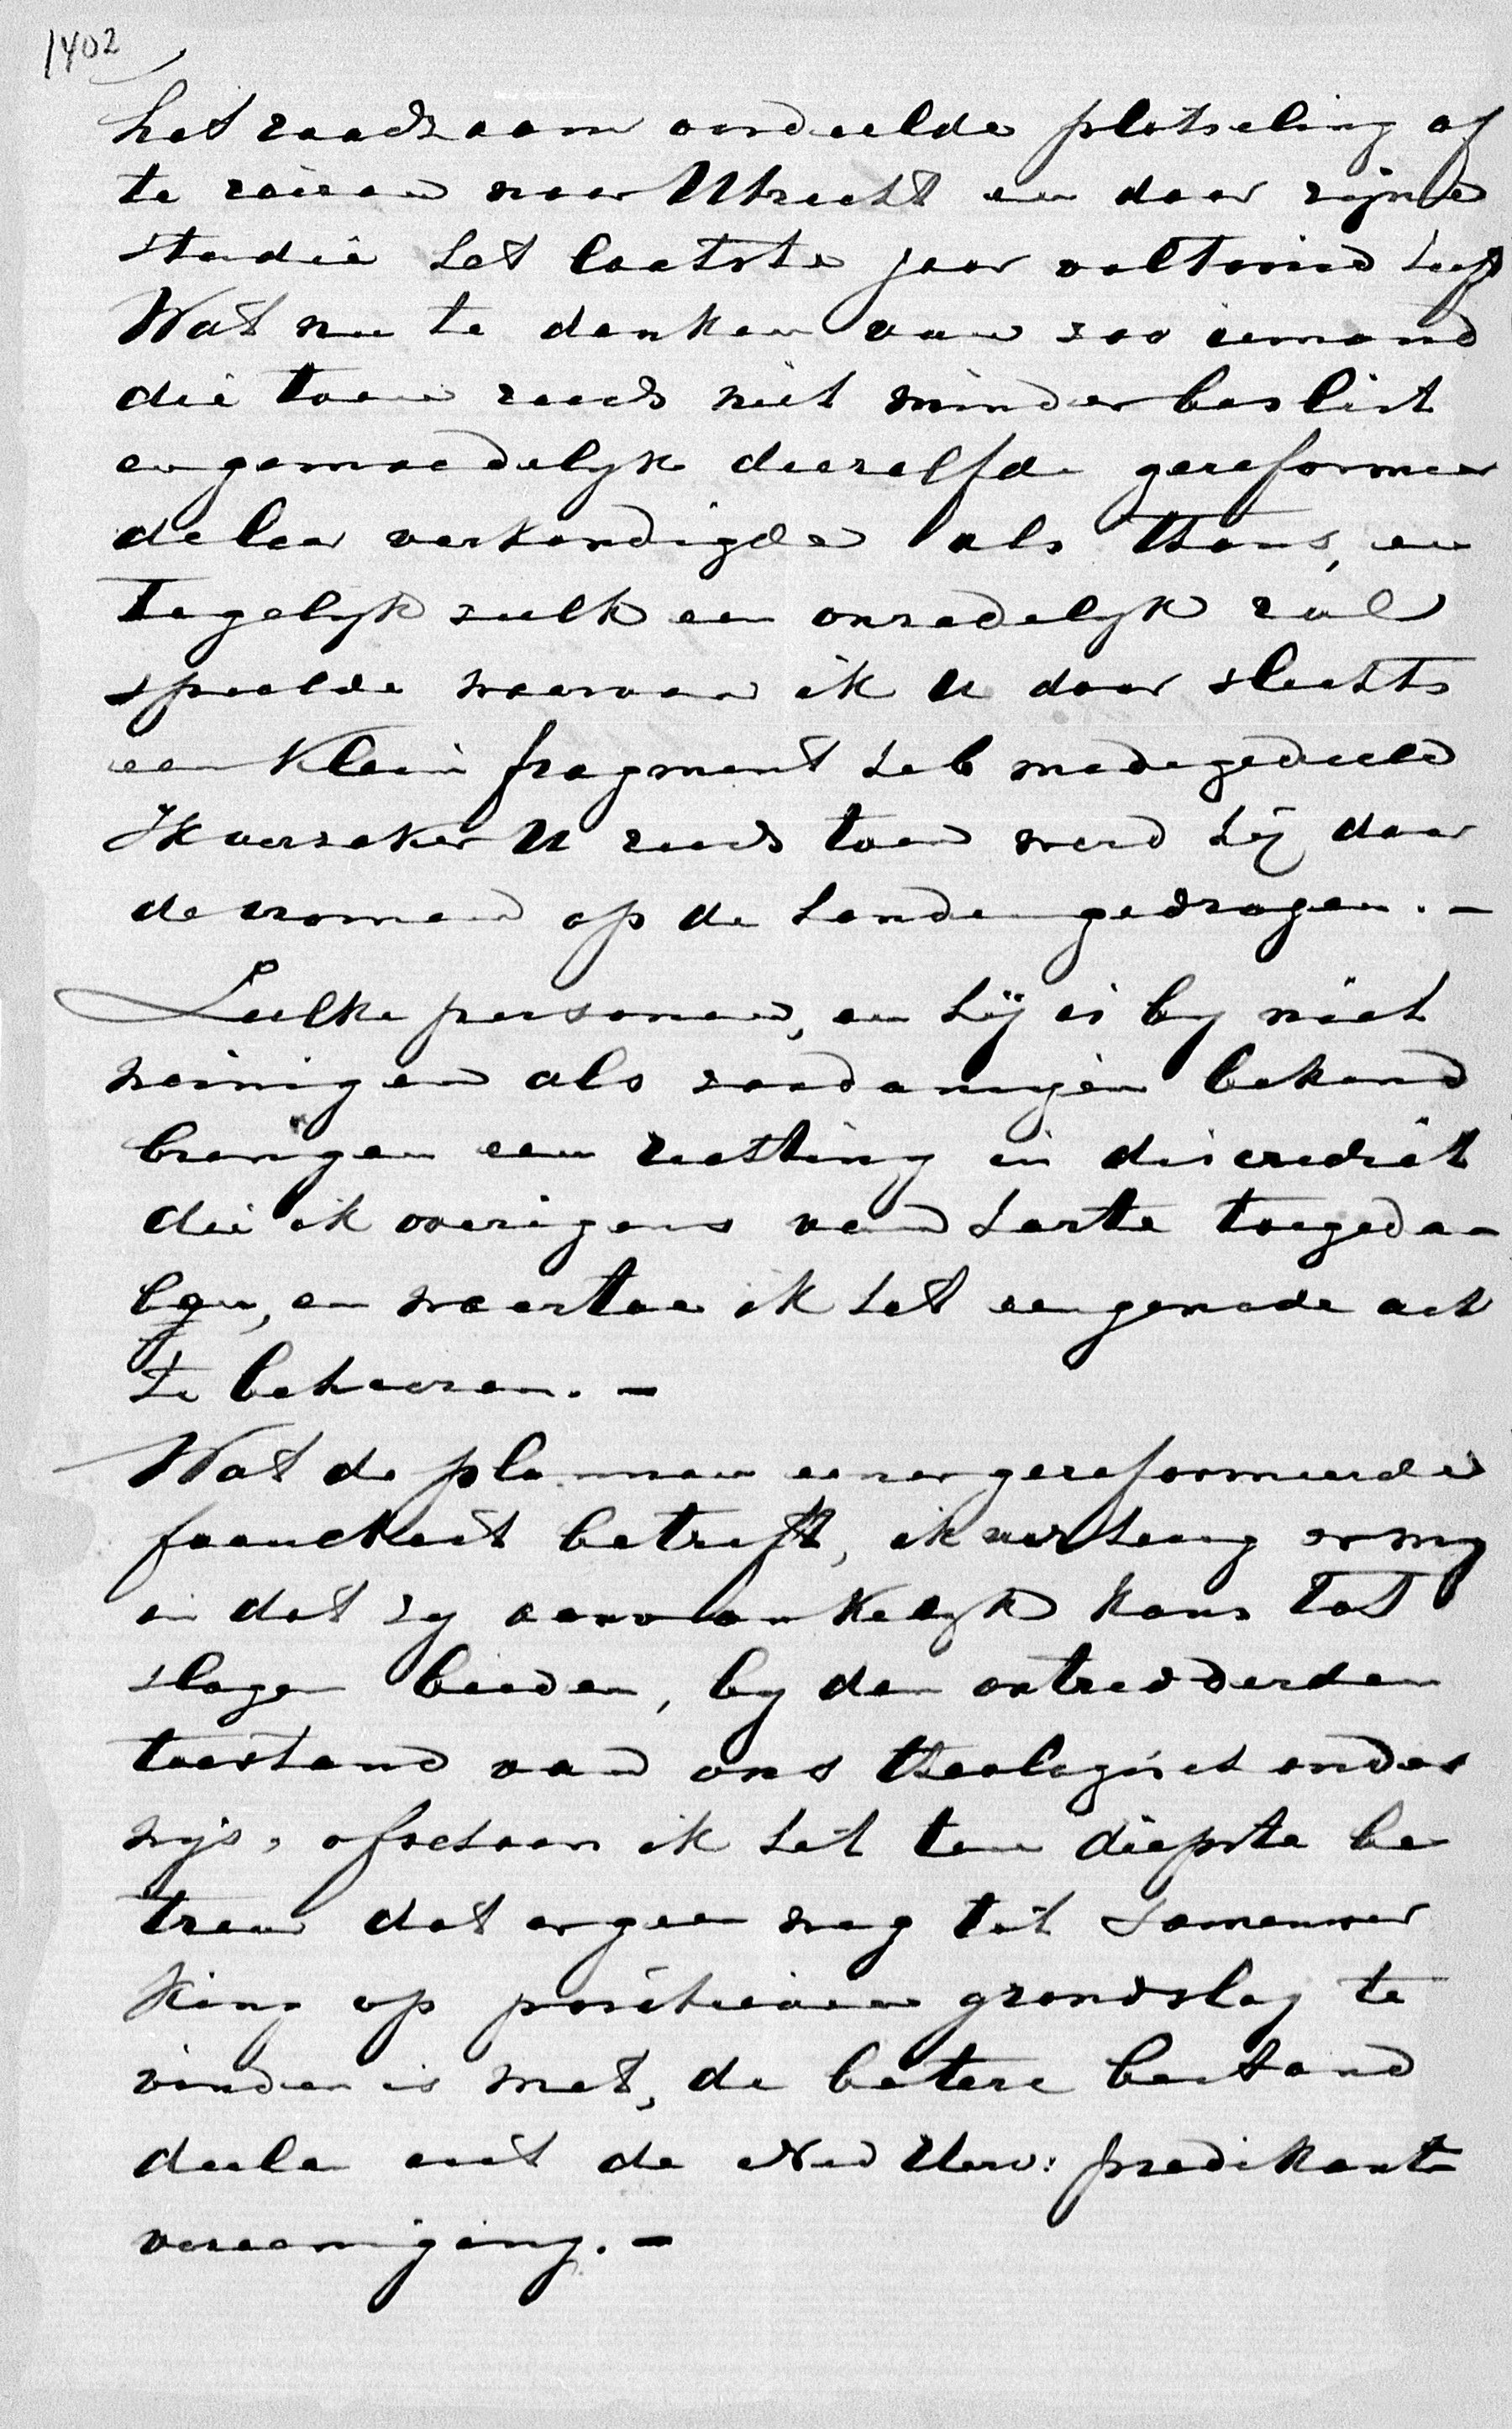 1402
het raadzaam oordeelde plotseling af
te reizen naar Utrecht en daar zijne
studie het laatste jaar voltooid heeft
Wat nu te denken van zoo iemand
die toen reeds niet minder beslist
en gemoedelyk diezelfde gereformeer
de leer verkondigde als thans, en
tegelyk zulk een onzedelyk rol
speelde waarvan ik U daar slechts
een klein fragment heb medegedeeld
Ik verzeker U reeds toen werd hij door
de vromen op de handen gedragen. –
Zulke personen, en hij is by niet
weinigen als zoodanigen bekend
brengen een richting in discrediet
die ik overigens van harte toegeda-
ben, en waartoe ik het een genade acht
te behooren. –
Wat de plannen eener gereformeerde
faculteit betreft, ik verheug er my
in dat zy aanvankelyk kans tot
slagen bieden, by den ontredderden
toestand van ons theologisch onder
wijs, ofschoon ik het ten diepste be
treur dat er geen weg tot samenwer
king op positieven grondslag te
vinden is met, de betere bestand
deelen uit de Ned Herv: predikante
vereeniging. –